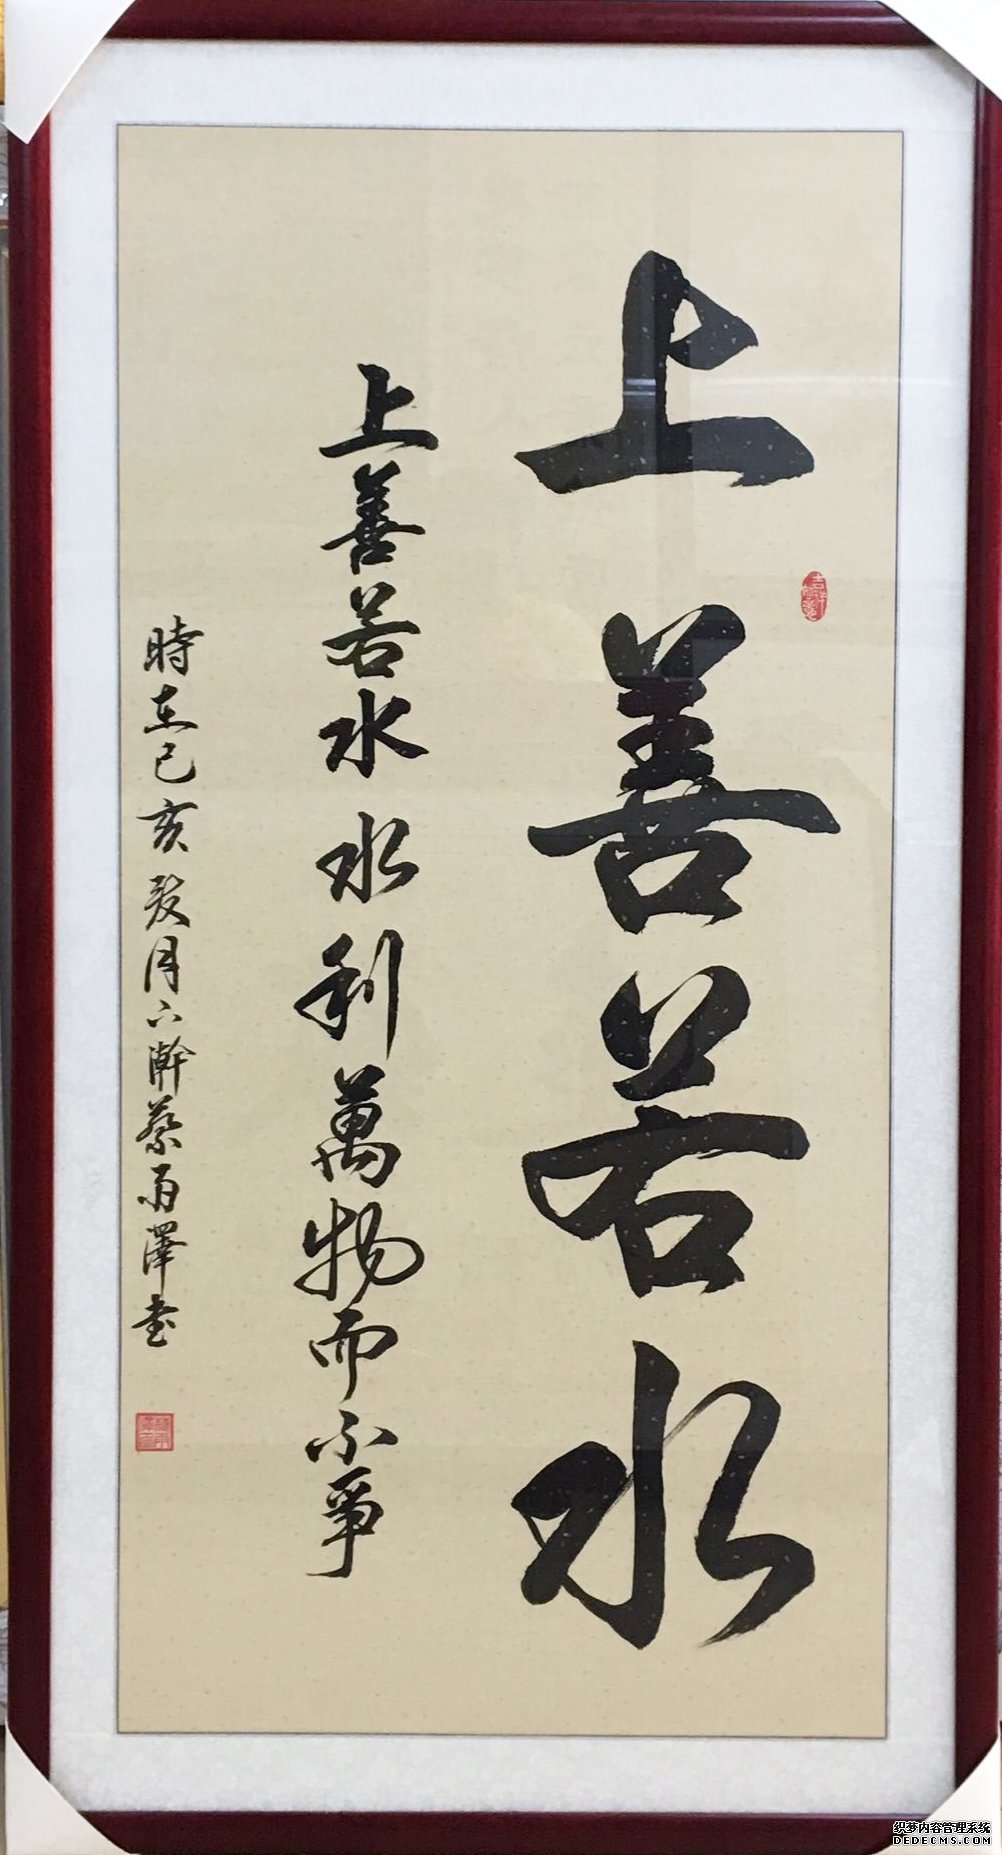 上善若水
上善若水水利萬物而不爭
時在己亥癸月下澣蔡雨澤书
织梦内容管理系统
DEDECMS.COM